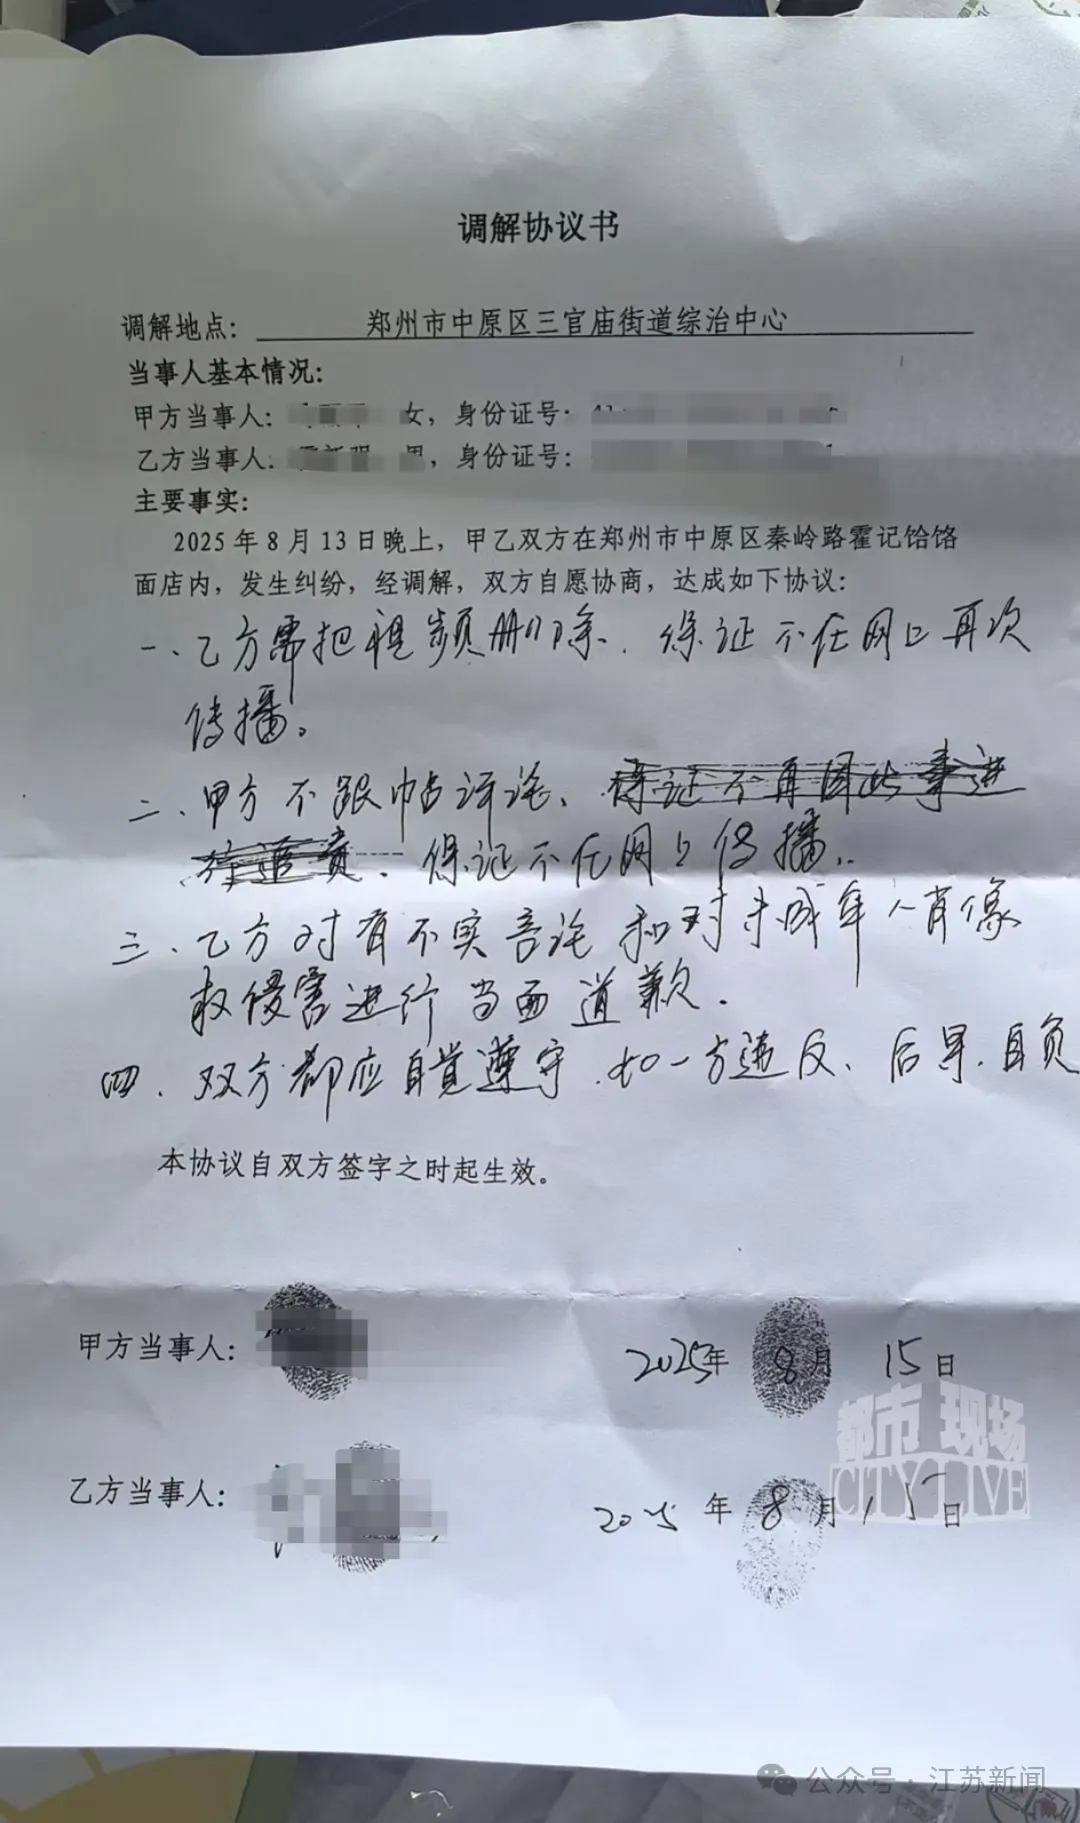 调解协议书
调解地点： 郑州市中原区三官庙街道综治中心
当事人基本情况：
甲方当事人： 女，身份证号：
乙方当事人： 男，身份证号：
主要事实：
2025年8月13日晚上，甲乙双方在郑州市中原区秦岭路霍记饸饹
面店内，发生纠纷，经调解，双方自愿协商，达成如下协议：
一、乙方需把视频删除．保证不在网上再次
传播。
二、甲方不跟帖评论、保证不再因此事进
行追责．保证不在网上传播．
三、乙方对有不实言论和对未成年人肖像
权侵害进行当面道歉．
四、双方都应自觉遵守．如一方违反、后果自负
本协议自双方签字之时起生效。
甲方当事人： 2025年8月15日
乙方当事人： 2025年8月15日
都市现场
CITY LIVE
公众号·江苏新闻